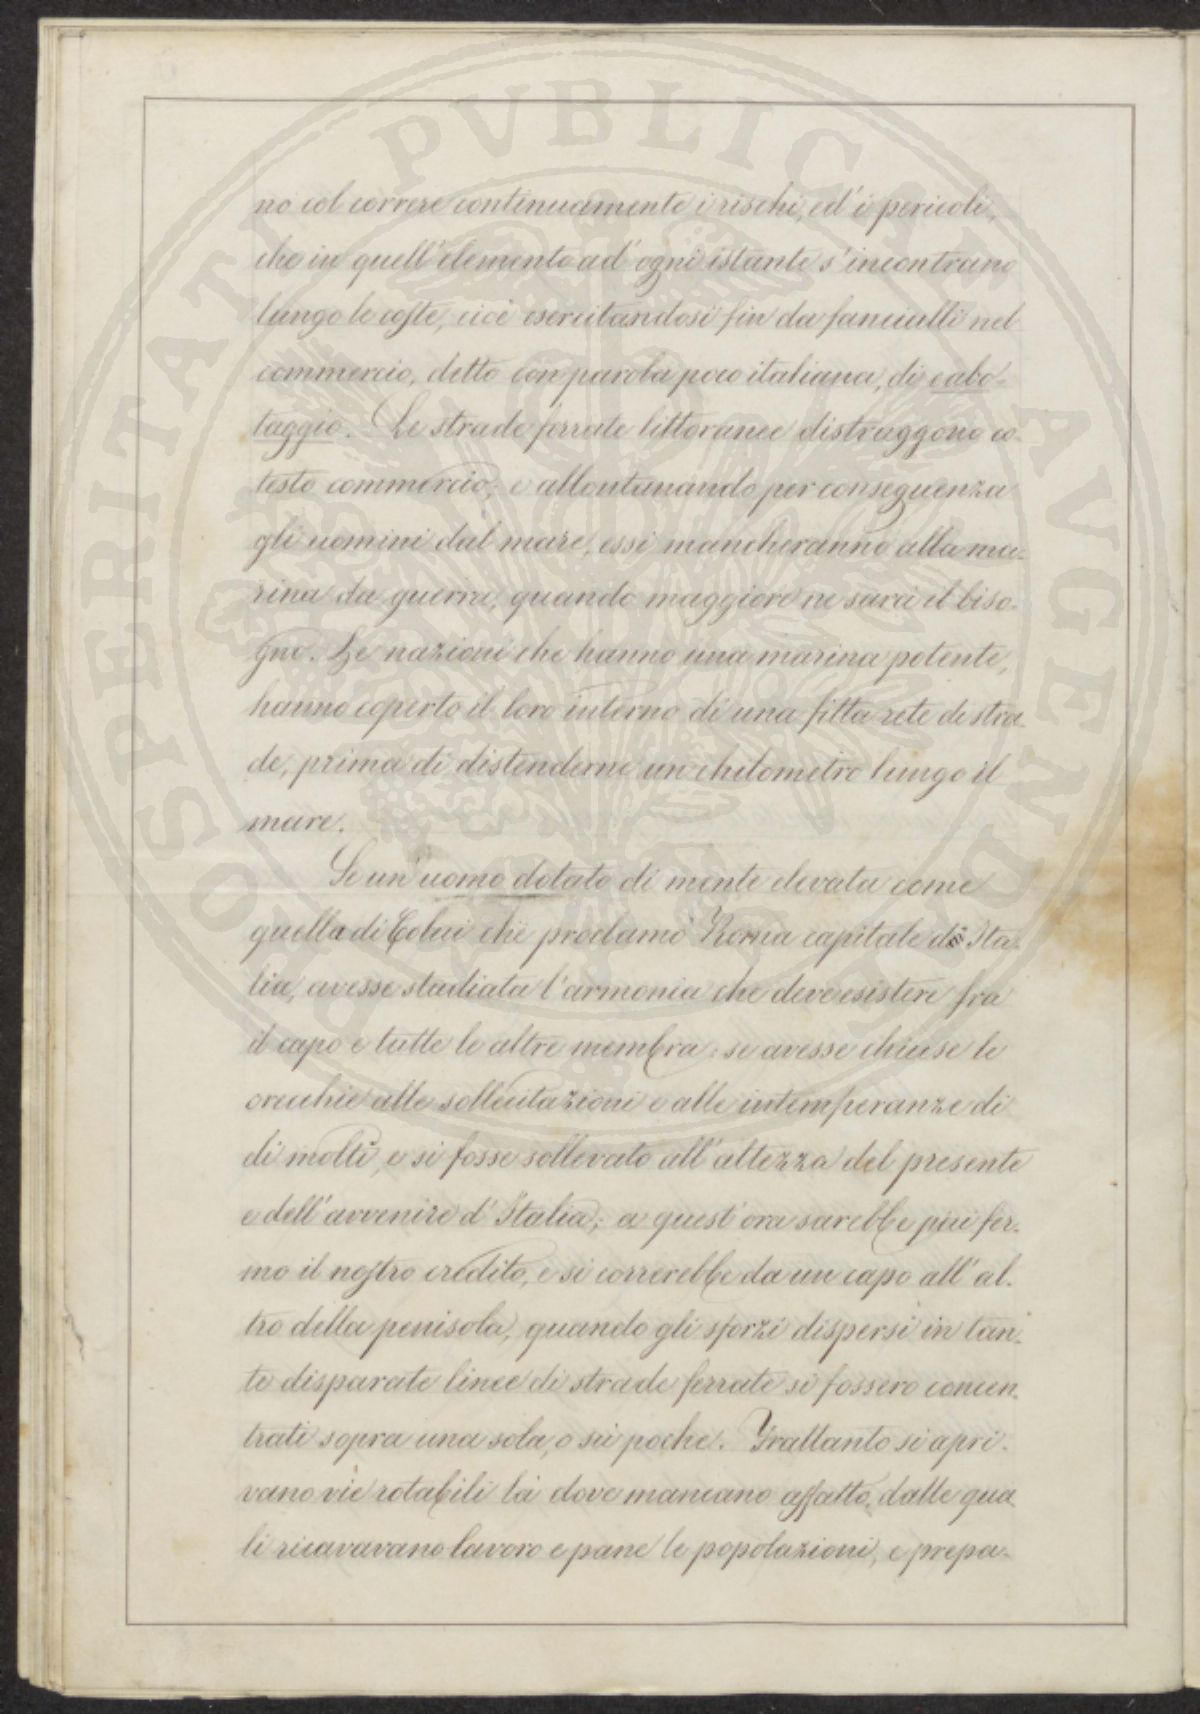 no col correre continuamente i rischi, ed i pericoli,
che in quell'elemento ad' ogni istante s'incontrano
lungo le coste, cioè esercitandosi fin da fanciulli nel
commercio, detto con parola poco italiana, di cabo-
taggio. Le strade ferrate littoranee distruggono co-
testo commercio; e allontanando per conseguenza
gli uomini dal mare, essi mancheranno alla ma-
rina da guerra, quando maggiore ne sarà il biso-
gno. Le nazioni che hanno una marina potente,
hanno coperto il loro interno di una fitta rete di stra-
de, prima di distenderne un chilometro lungo il
mare.
Se un'uomo dotato di mente elevata come
quella di Colui che proclamò Roma capitale di Ita-
lia, avesse studiata l'armonia che deve esistere fra
il capo e tutte le altre membra: se avesse chiuse le
orecchie alle sollecitazioni e alle intemperanze di
di molti, e si fosse sollevato all'altezza del presente
e dell'avvenire d'Italia; a quest'ora sarebbe più fer-
mo il nostro credito, e si correrebbe da un capo all'al-
tro della penisola, quando gli sforzi dispersi in tan-
te disparate linee di strade ferrate si fossero concen-
trati sopra una sola, o su poche. Frattanto si apri-
vano vie rotabili là dove mancano affatto, dalle qua-
li ricavavano lavoro e pane le popolazioni, e prepa-
PROSPERITATI PVBLICAE AVGENDAE